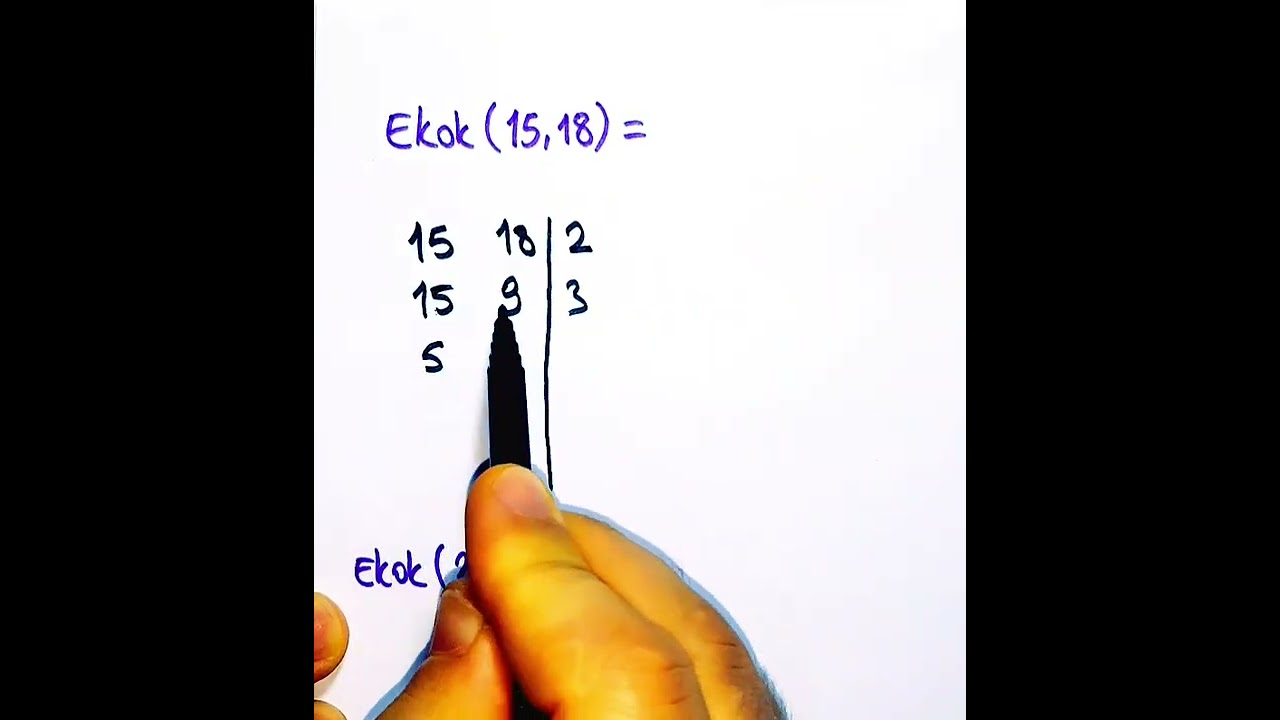 Ekok (15,18) =
15 18 | 2
15 9 | 3
5
Ekok (